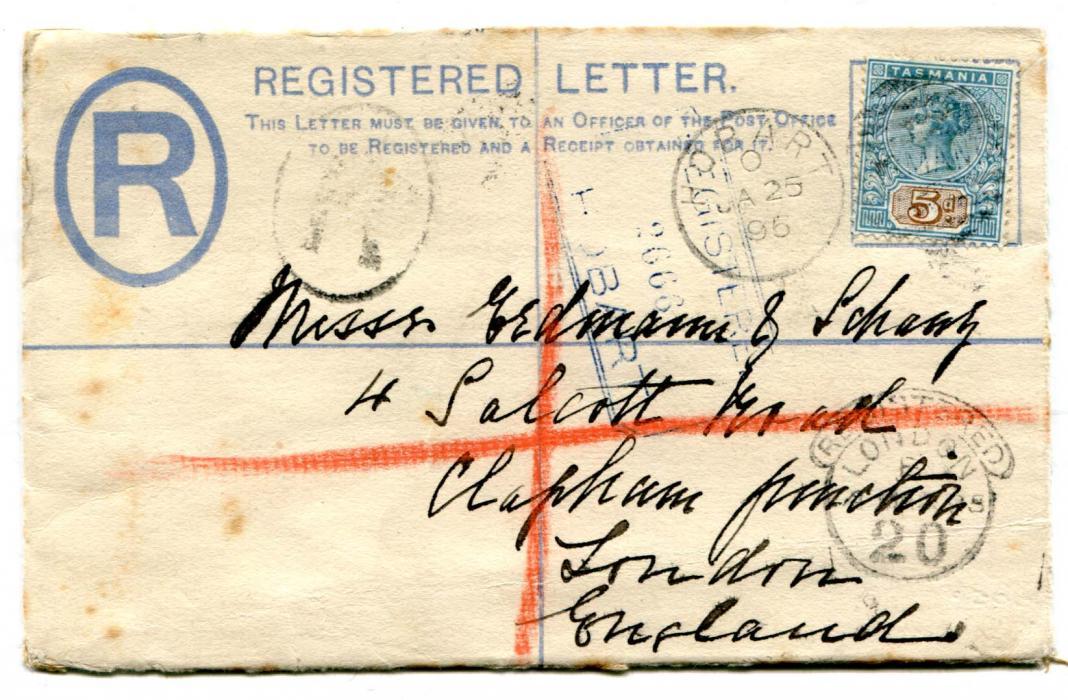 REGISTERED LETTER.
THIS LETTER MUST BE GIVEN TO AN OFFICER OF THE POST OFFICE
TO BE REGISTERED AND A RECEIPT OBTAINED FOR IT.
R
TASMANIA
5d
HOBART
A 25
96
R
REGISTERED
2666
HOBART
Messrs Erdmann & Schanz
4 Salcott Road
Clapham Junction
London
England
REGISTERED
LONDON
20